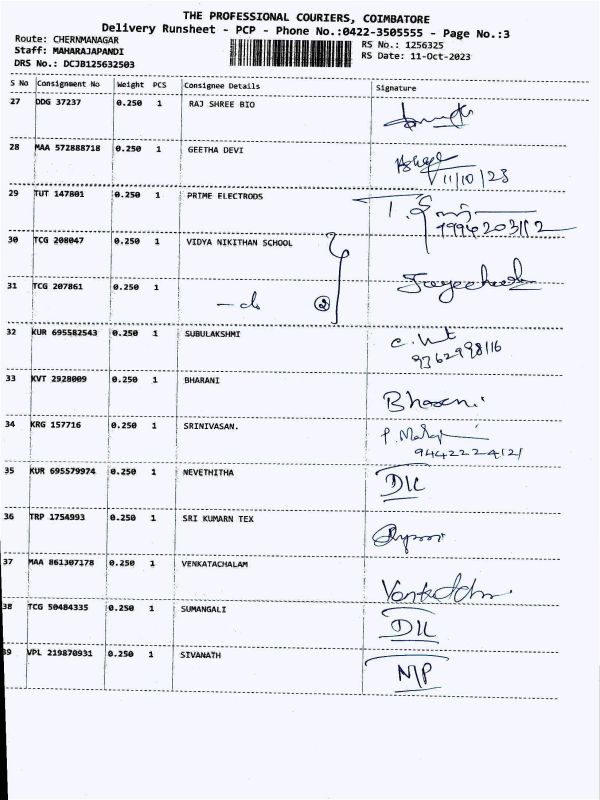 THE PROFESSIONAL COURIERS, COIMBATORE
Delivery Runsheet - PCP - Phone No.:0422-3505555 - Page No.:3
Route: CHERNMANAGAR
Staff: MAHARAJAPANDI
DRS No.: DCJB125632503
RS No.: 1256325
RS Date: 11-Oct-2023
S No Consignment No Weight PCS Consignee Details Signature
27 DDG 37237 0.250 1 RAJ SHREE BIO
28 MAA 572888718 0.250 1 GEETHA DEVI
11/10/23
29 TUT 147801 0.250 1 PRIME ELECTRODS
9994203112
30 TCG 208047 0.250 1 VIDYA NIKITHAN SCHOOL
31 TCG 207861 0.250 1
- do 2
32 KUR 695582543 0.250 1 SUBULAKSHMI
9362998116
33 KVT 2928009 0.250 1 BHARANI Bharani
34 KRG 157716 0.250 1 SRINIVASAN.
9442224121
35 KUR 695579974 0.250 1 NEVETHITHA D/L
36 TRP 1754993 0.250 1 SRI KUMARN TEX
37 MAA 861307178 0.250 1 VENKATACHALAM
38 TCG 50484335 0.250 1 SUMANGALI D/L
39 VPL 219870931 0.250 1 SIVANATH N/P